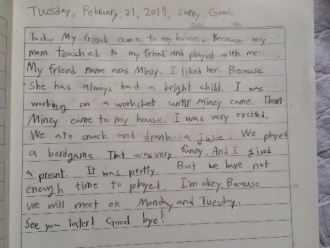 Tuesday, February, 21, 2017, sunny, Good.
Today My friend came to my house. Because my
mom teached to my friend and played with me.
My friend name was Minzy. I liked her. Because
She has always had a bright child. I was
working on a worksheet until Minzy came. Then
Minzy came to my house. I was very excited.
We ate snack and drank a juice. We played
a bordgame. That was very funny. And I gived
a present. It was pretty. But we have not
enough time to played. I'm okey. Because
we will meet on Monday and Tuesday.
See you later! Good bye!